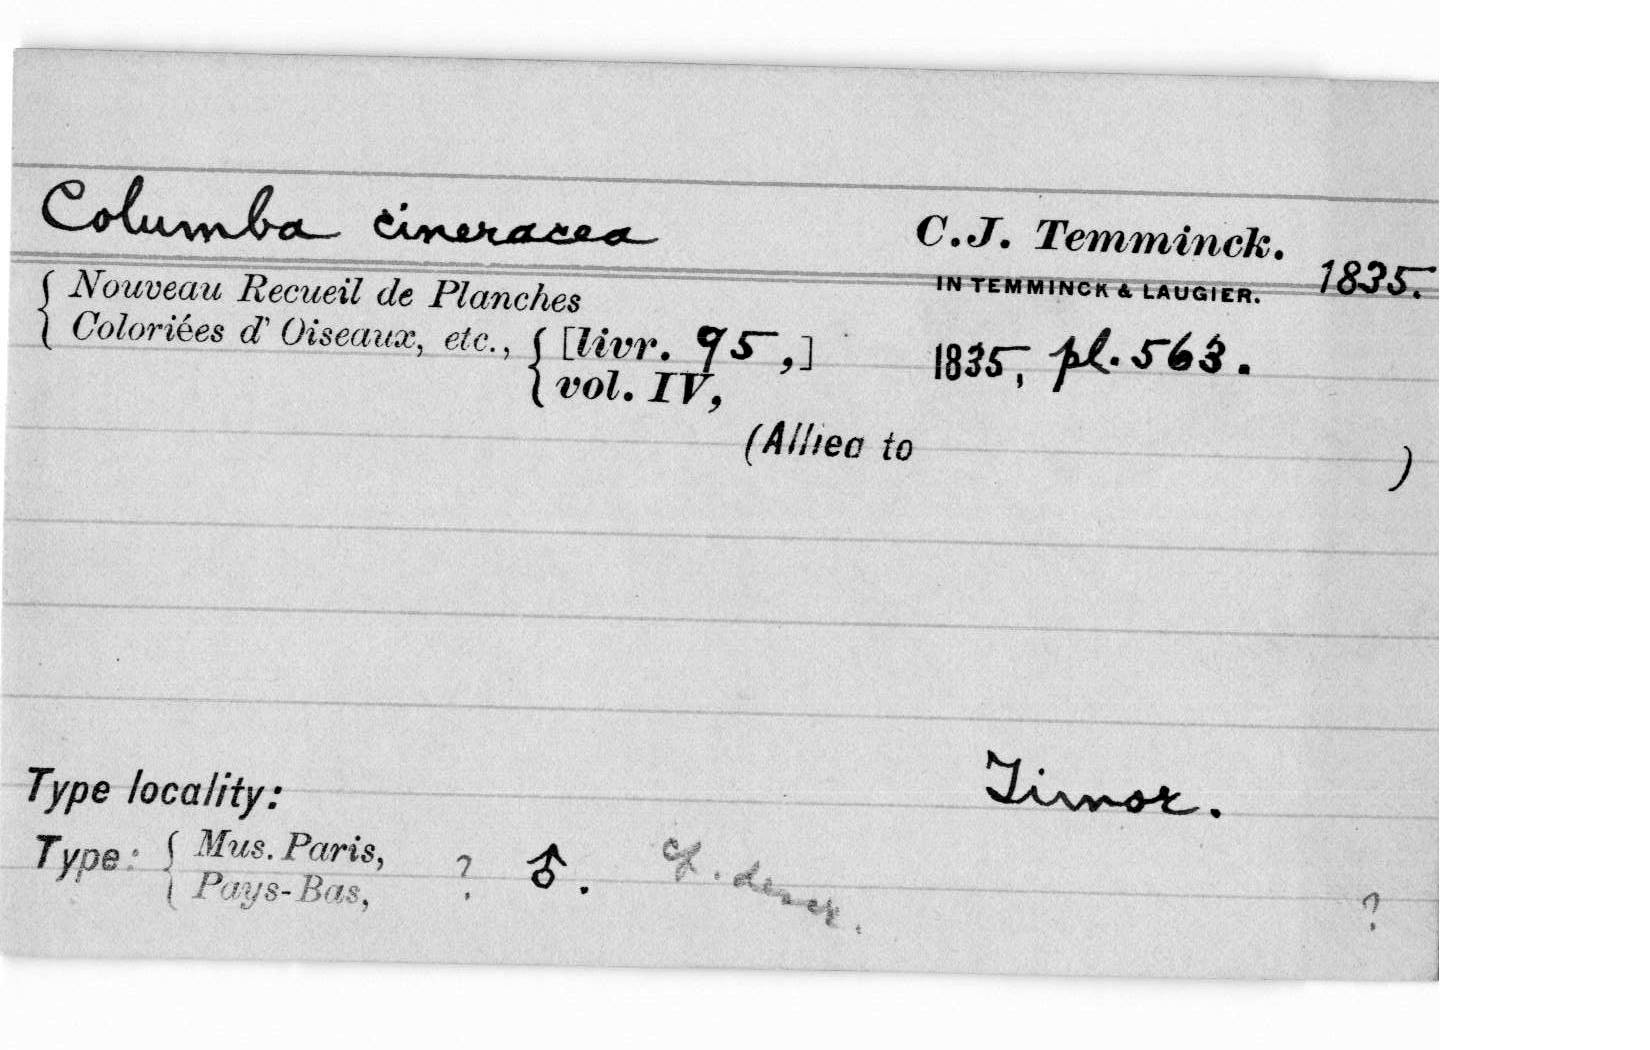 Columba cineracea C.J. Temminck.
IN TEMMINCK & LAUGIER. 1835.
{ Nouveau Recueil de Planches
Coloriées d' Oiseaux, etc., { [livr. 95,] 1835, pl. 563.
vol. IV,
(Allied to )
Type locality: Timor.
Type: { Mus. Paris, ? ♂. cf. descr. ?
Pays-Bas,